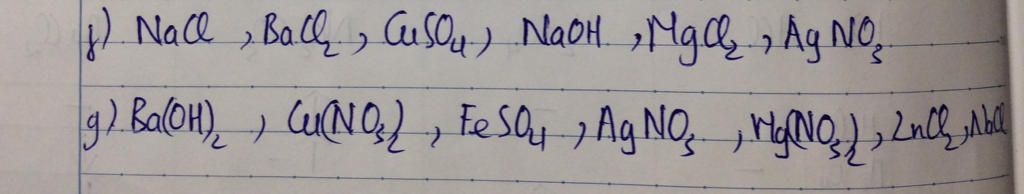 f) NaCl , BaCl₂ , CuSO₄ , NaOH , MgCl₂ , AgNO₃
g) Ba(OH)₂ , Cu(NO₃)₂ , FeSO₄ , AgNO₃ , Mg(NO₃)₂ , ZnCl₂ , NaCl